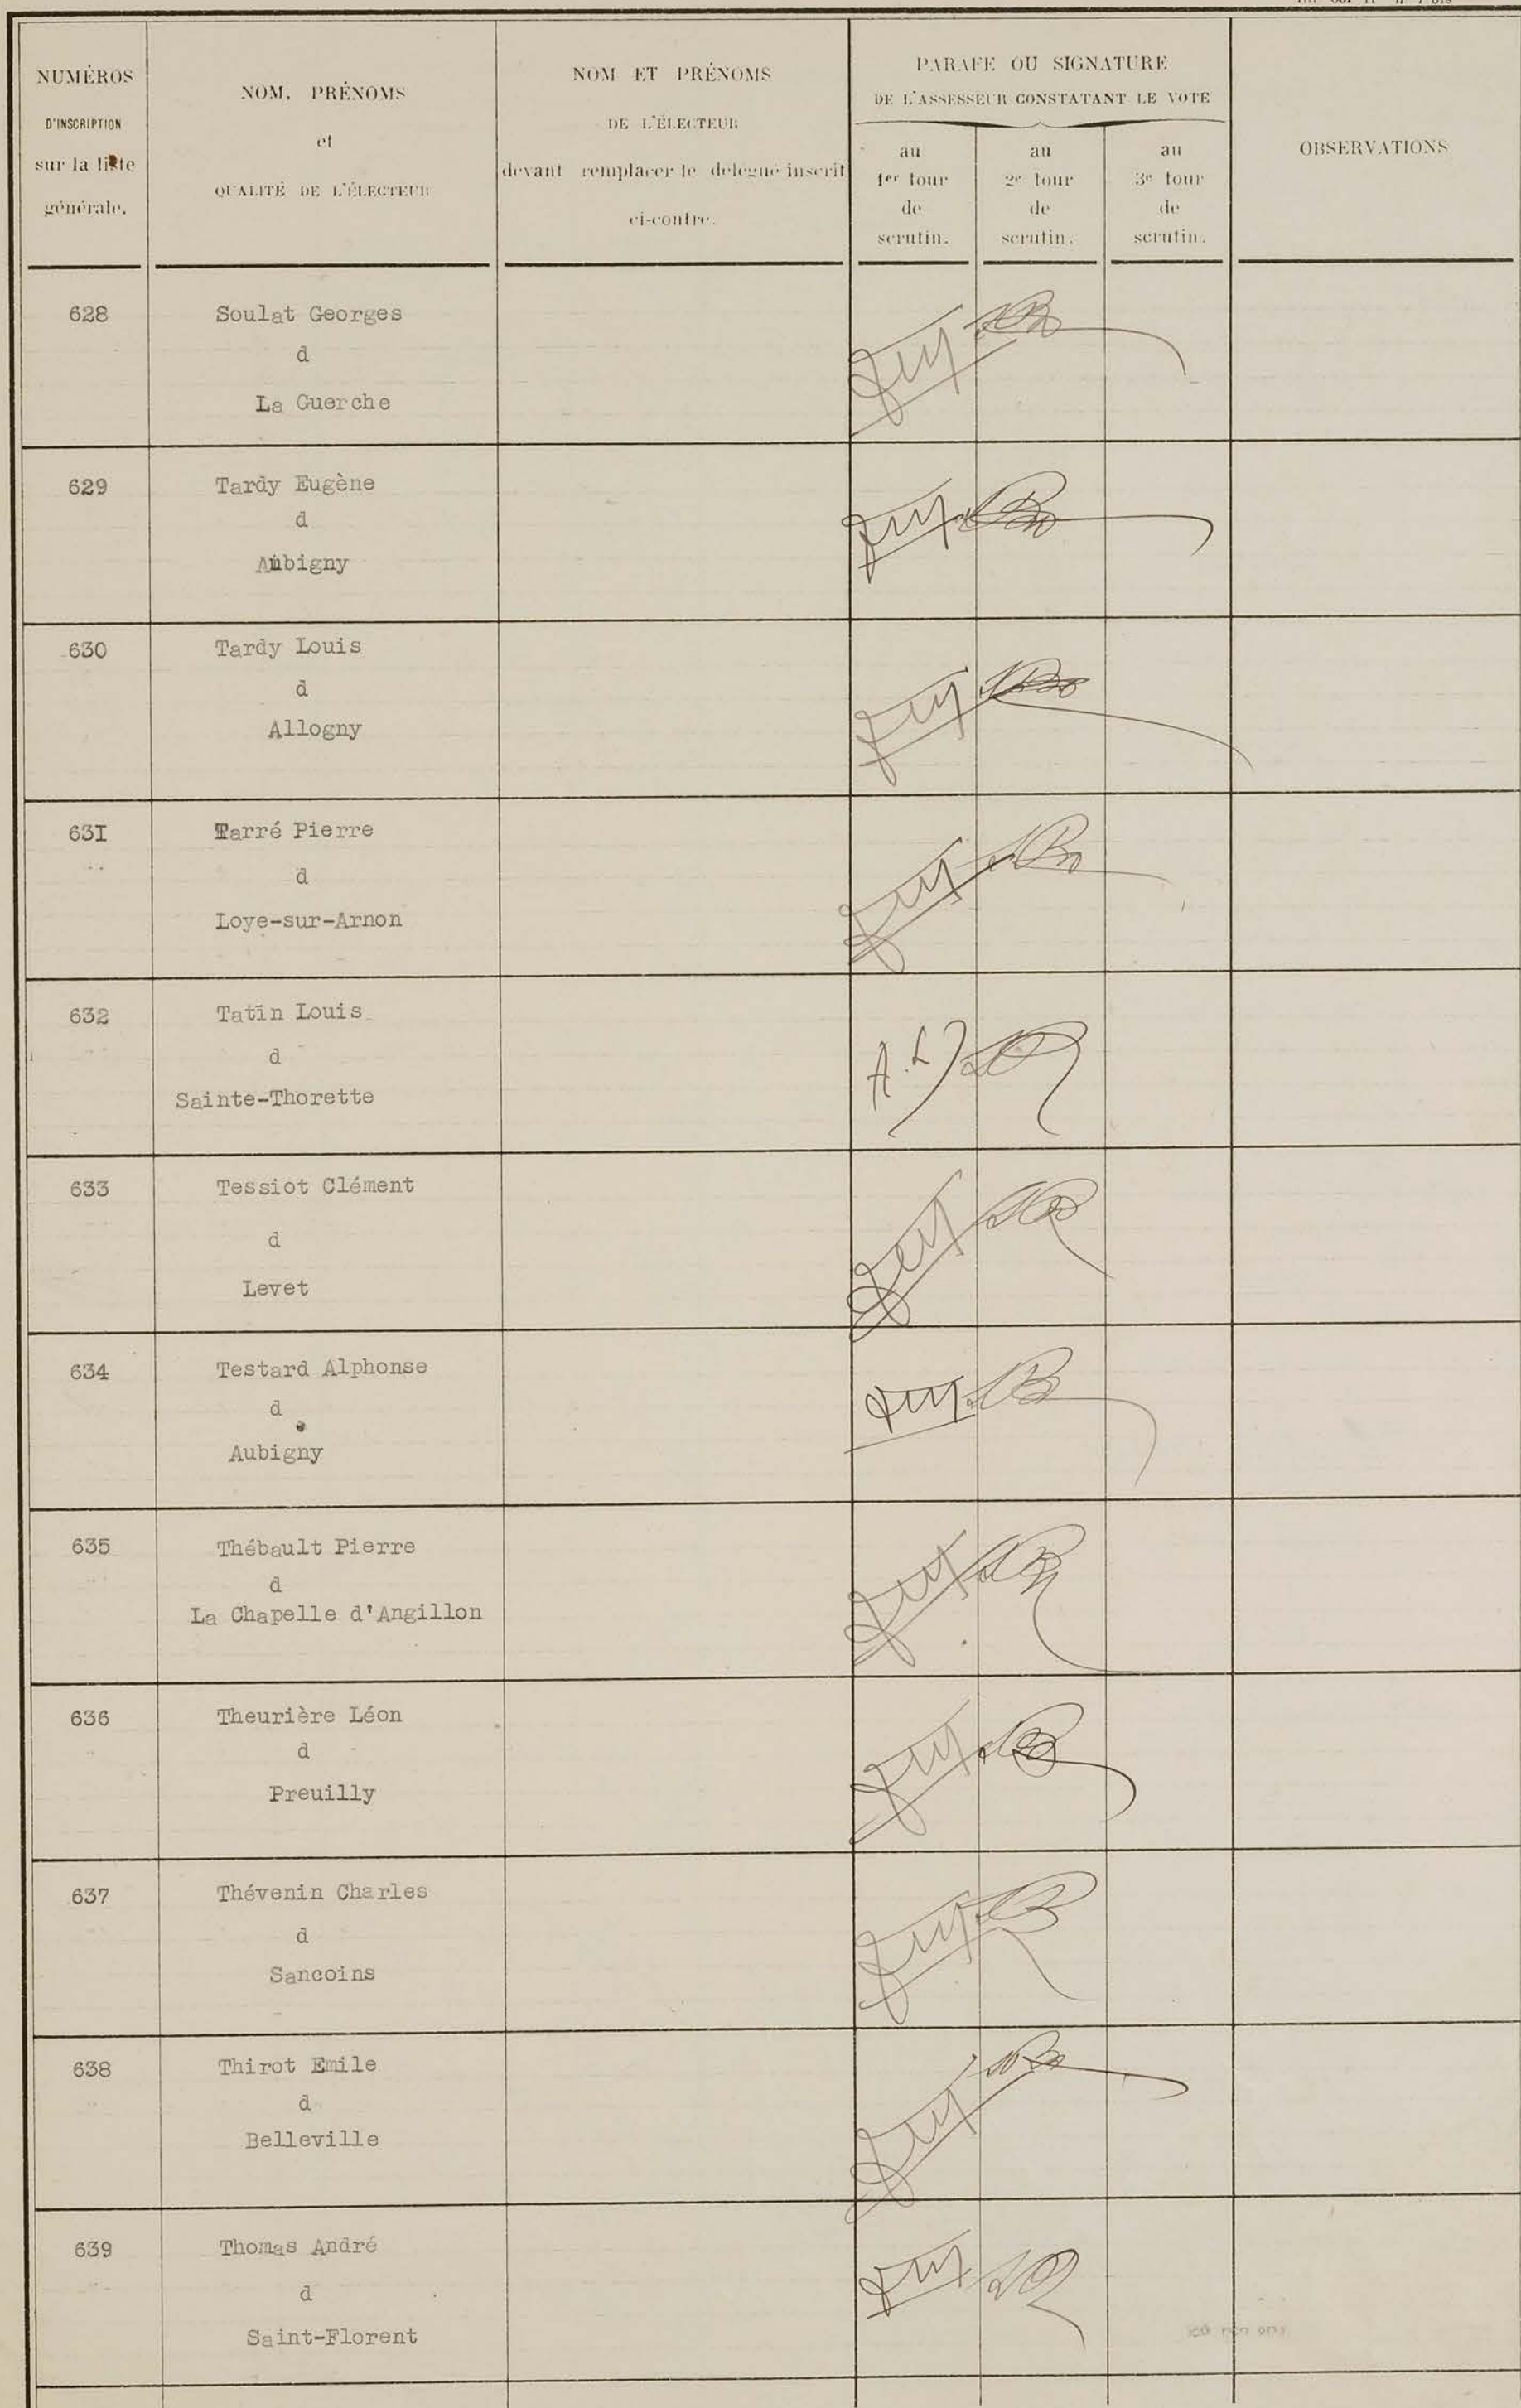 NUMÉROS
D'INSCRIPTION
sur la liste
générale.
NOM, PRÉNOMS
et
QUALITÉ DE L'ÉLECTEUR
NOM ET PRÉNOMS
DE L'ÉLECTEUR
devant remplacer le délégué inscrit
ci-contre.
PARAFE OU SIGNATURE
DE L'ASSESSEUR CONSTATANT LE VOTE
au
1er tour
de
scrutin.
au
2e tour
de
scrutin.
au
3e tour
de
scrutin.
OBSERVATIONS
628
Soulat Georges
d
La Guerche
629
Tardy Eugène
d
Aubigny
630
Tardy Louis
d
Allogny
63I
Tarré Pierre
d
Loye-sur-Arnon
632
Tatin Louis
d
Sainte-Thorette
A.L
633
Tessiot Clément
d
Levet
634
Testard Alphonse
d
Aubigny
635
Thébault Pierre
d
La Chapelle d'Angillon
636
Theurière Léon
d
Preuilly
637
Thévenin Charles
d
Sancoins
638
Thirot Emile
d
Belleville
639
Thomas André
d
Saint-Florent